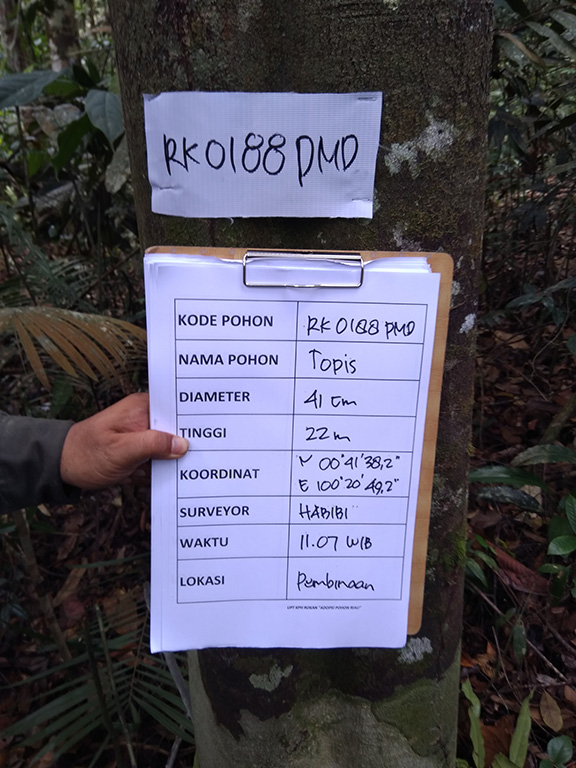 RK0188 PMD
KODE POHON RK 0188 PMD
NAMA POHON Topis
DIAMETER 41 cm
TINGGI 22 m
KOORDINAT N 00°41'38,2"
E 100°20'49,2"
SURVEYOR HABIBI
WAKTU 11.07 WIB
LOKASI Pembinaan
UPT KPH ROKAN "ADOPSI POHON RIAU"